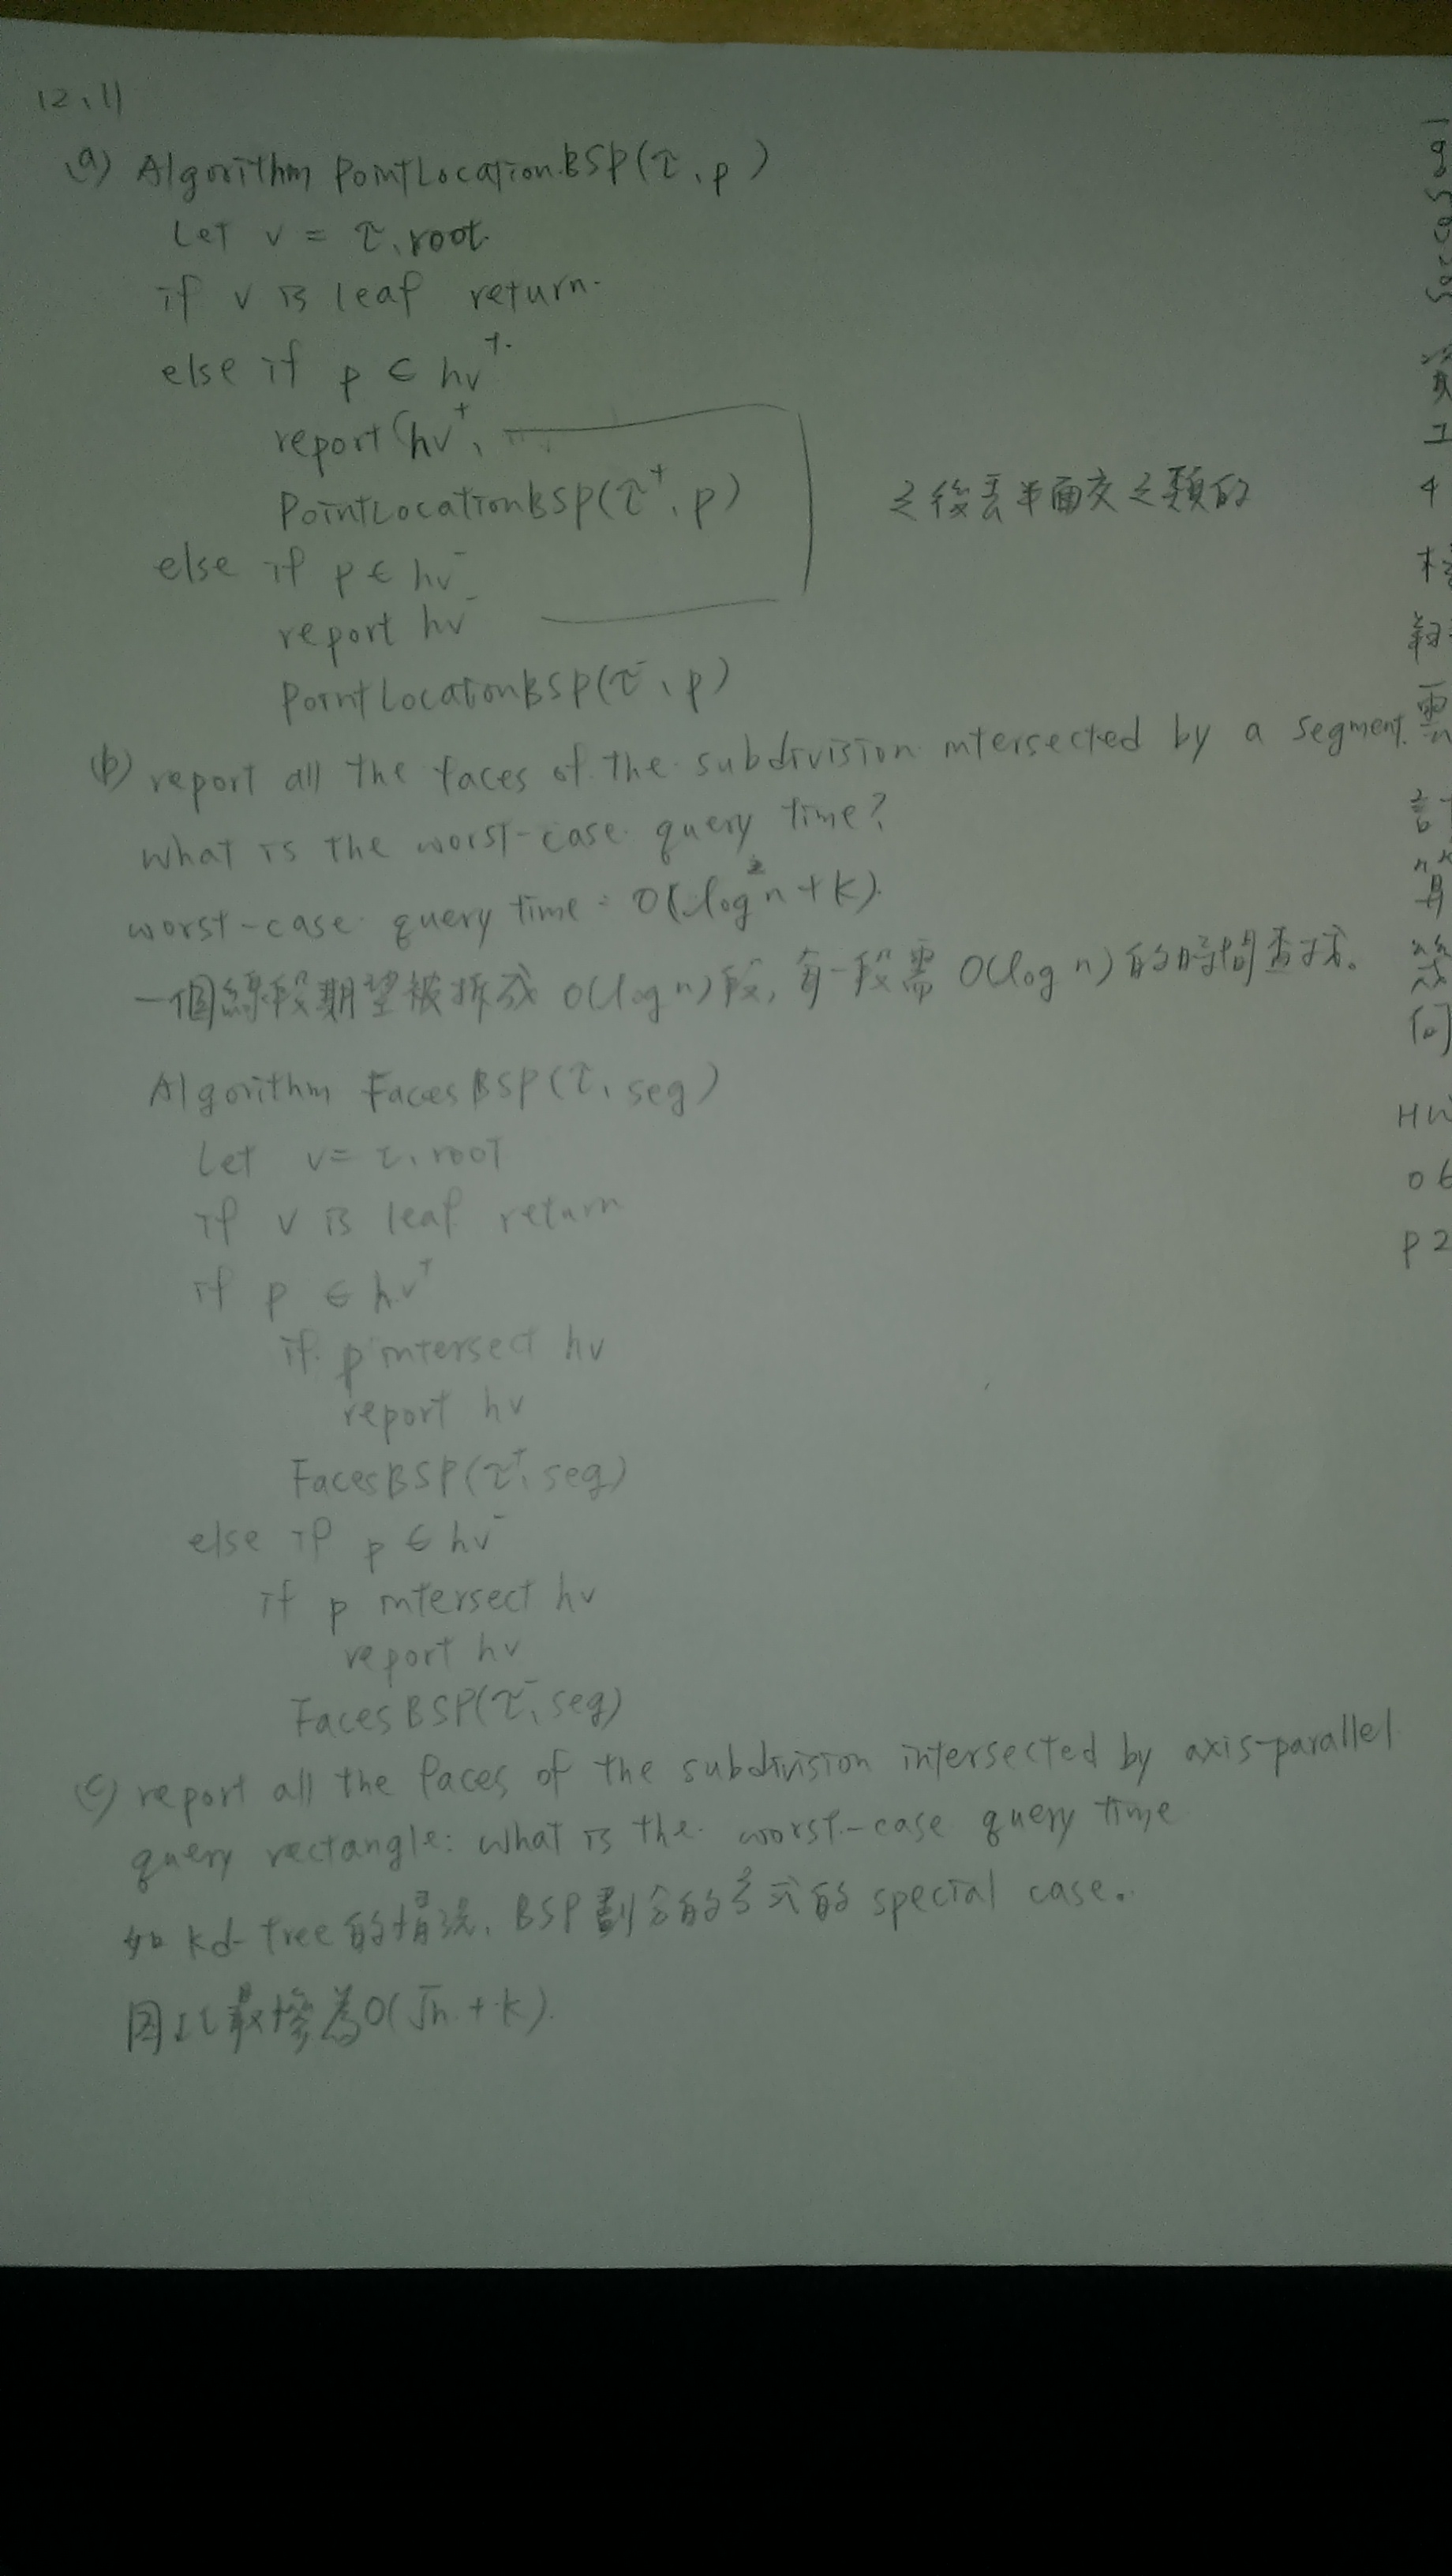 12.11
(a) Algorithm PointLocationBSP(τ, p)
Let v = τ.root.
if v is leaf return.
else if p ∈ hv⁺
report (hv⁺,
PointLocationBSP(τ⁺, p)
之後丟半面交之類的
else if p ∈ hv⁻
report hv⁻
PointLocationBSP(τ⁻, p)
(b) report all the faces of the subdivision intersected by a segment.
What is the worst-case query time?
worst-case query time: O(log²n + k).
一個線段期望被拆成 O(log n) 段, 每一段需 O(log n) 的時間查找。
Algorithm FacesBSP(τ, seg)
Let v = τ.root
if v is leaf return
if p ∈ hv⁺
if p intersect hv
report hv
FacesBSP(τ⁺, seg)
else if p ∈ hv⁻
if p intersect hv
report hv
FacesBSP(τ⁻, seg)
(c) report all the faces of the subdivision intersected by axis-parallel
query rectangle: what is the worst-case query time
如 kd-tree 的情況, BSP 劃分的方式的 special case.
因此最慘為 O(√n + k).
HW
P2